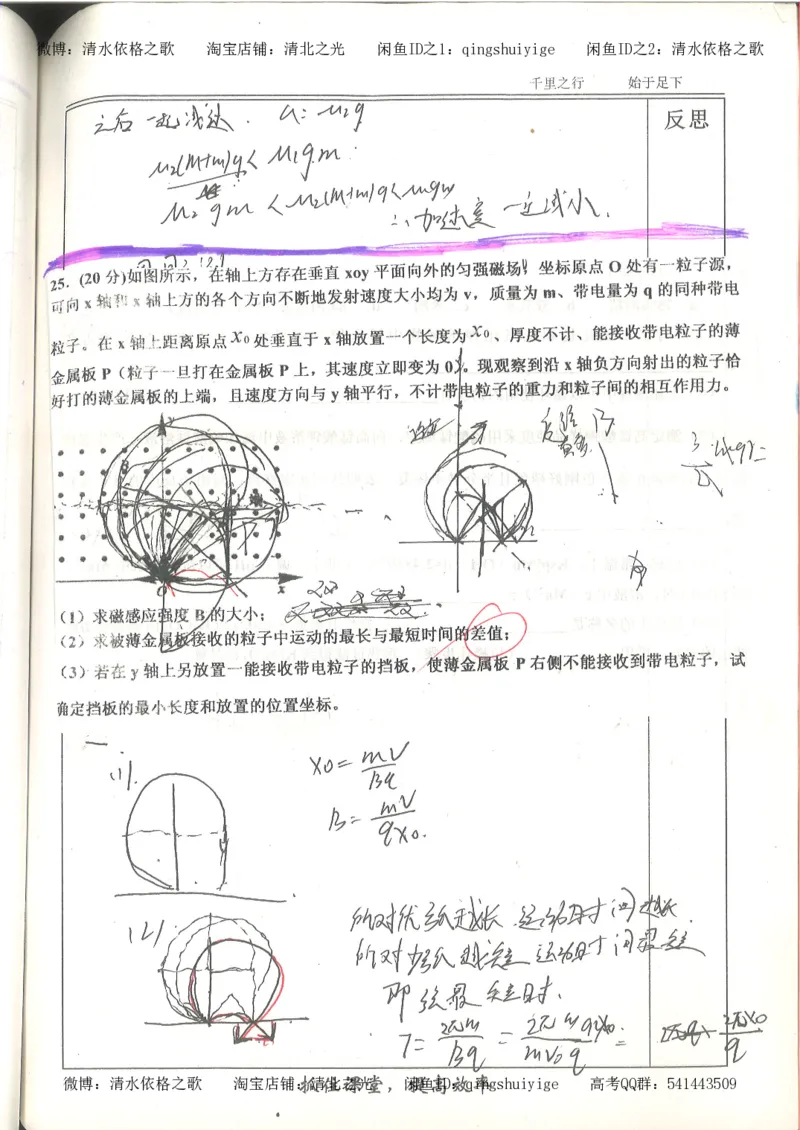 微博：清水依格之歌 淘宝店铺：清北之光 闲鱼ID之1：qingshuiyige 闲鱼ID之2：清水依格之歌
千里之行 始于足下
之后一起减速. a=μ₂g
反思
μ₂(M+m)g< μ₁gm
μ₂gm <μ₂(M+m)g<μgm
∴加速度一定减小.
25. (20 分)如图所示，在轴上方存在垂直 xoy 平面向外的匀强磁场，坐标原点 O 处有一粒子源，
可向 x 轴和 x 轴上方的各个方向不断地发射速度大小均为 v，质量为 m、带电量为 q 的同种带电
粒子。在 x 轴上距离原点 x₀ 处垂直于 x 轴放置一个长度为 x₀、厚度不计、能接收带电粒子的薄
金属板 P（粒子一旦打在金属板 P 上，其速度立即变为 0）。现观察到沿 x 轴负方向射出的粒子恰
好打的薄金属板的上端，且速度方向与 y 轴平行，不计带电粒子的重力和粒子间的相互作用力。
y
P
O x
（1）求磁感应强度 B 的大小；
（2）求被薄金属板接收的粒子中运动的最长与最短时间的差值；
（3）若在 y 轴上另放置一能接收带电粒子的挡板，使薄金属板 P 右侧不能接收到带电粒子，试
确定挡板的最小长度和放置的位置坐标。
一
(1). x₀= mv/Bq
B= mv/qx₀.
所对优弧越长 运动时间越长
(2) 所对劣弧越短 运动时间最短
即弦最短时.
T= 2πm/Bq =
微博：清水依格之歌 淘宝店铺：清北之光 闲鱼ID：qingshuiyige 高考QQ群：541443509
抓住课堂，提高效率